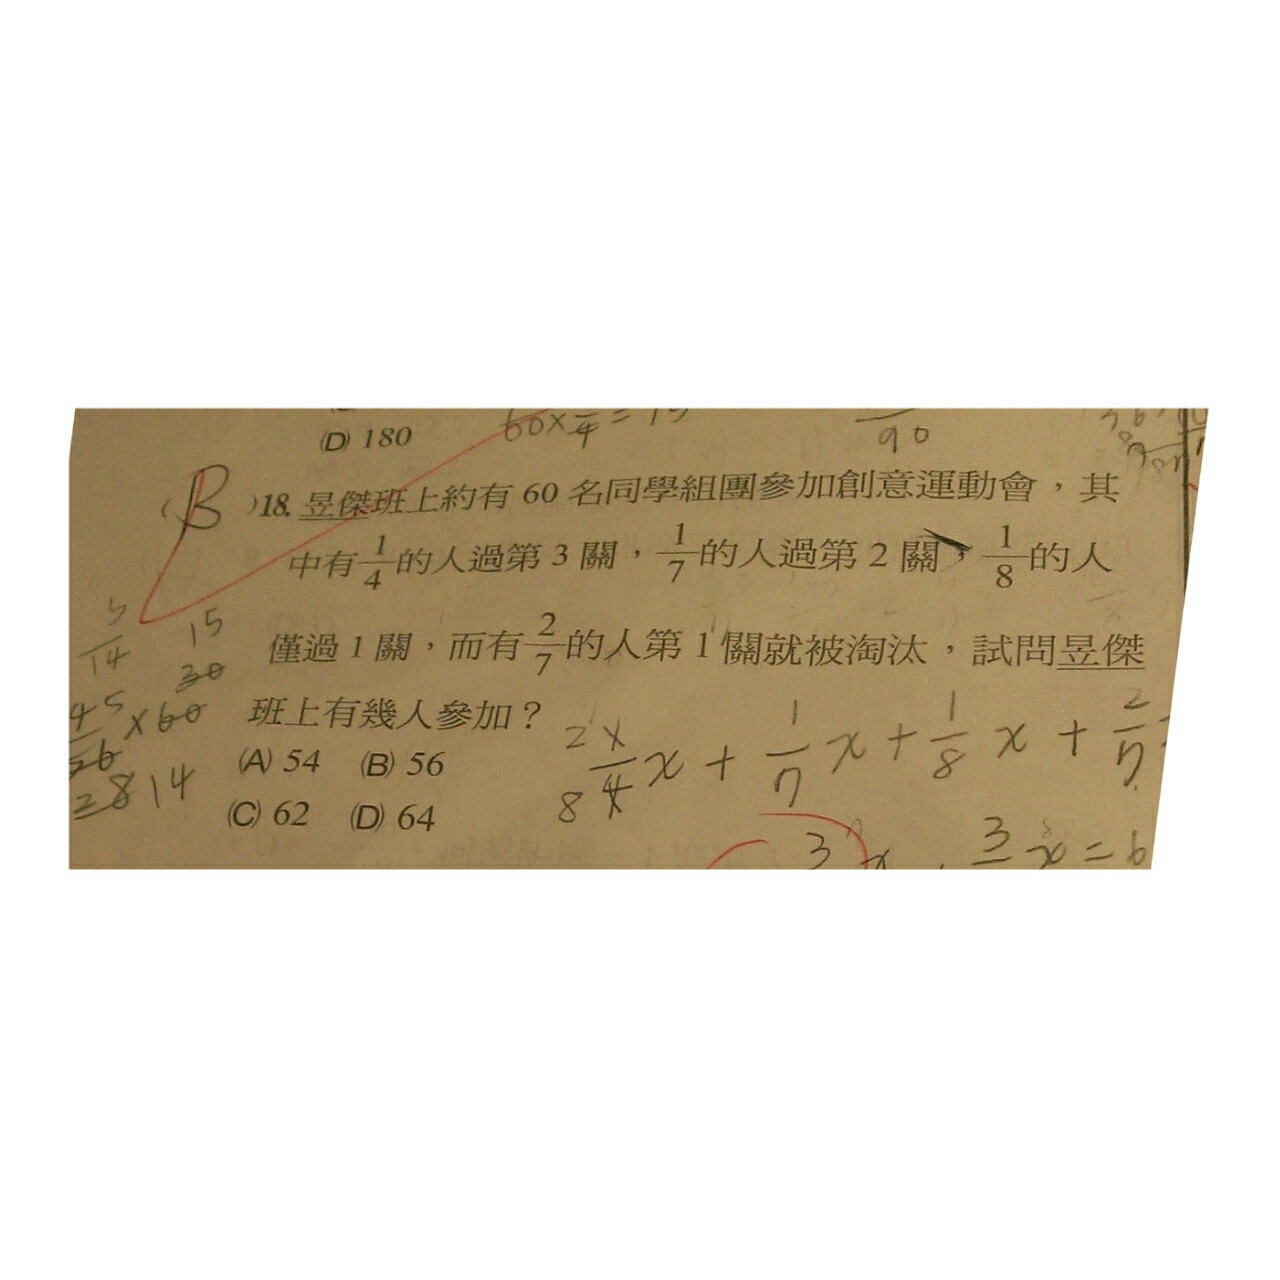 (D) 180
60×/4=15
90
(B)18. 昱傑班上約有 60 名同學組團參加創意運動會，其
中有1/4的人過第 3 關，1/7的人過第 2 關，1/8的人
僅過 1 關，而有2/7的人第 1 關就被淘汰，試問昱傑
班上有幾人參加？
(A) 54 (B) 56
(C) 62 (D) 64
5/14 15
30
45/56×60
28 14
2 1/4x+1/7x+1/8x+2/7
8
3 x 3 x=6